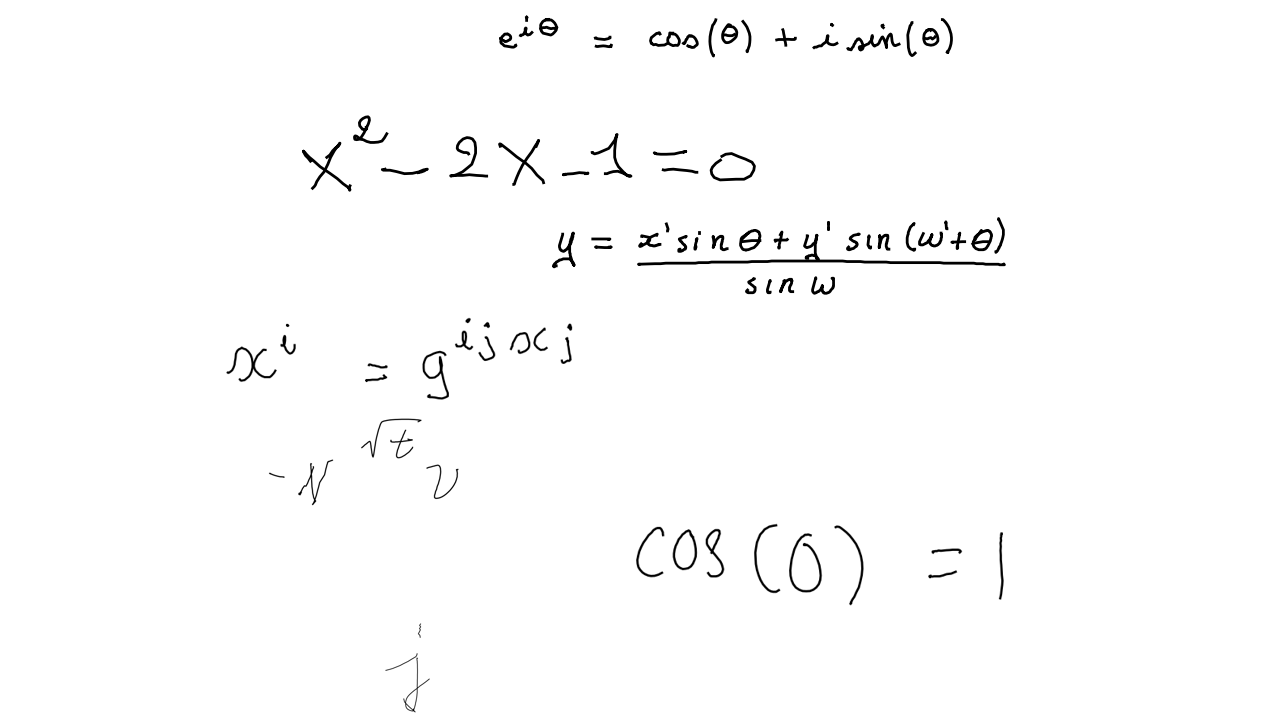 e^{iθ} = cos(θ) + i sin(θ)
x^2 - 2x - 1 = 0
y = \frac{x' sin θ + y' sin (ω' + θ)}{sin ω}
x^i = g^{ij x j}
-N^{\sqrt{t}} v
cos(0) = 1
j